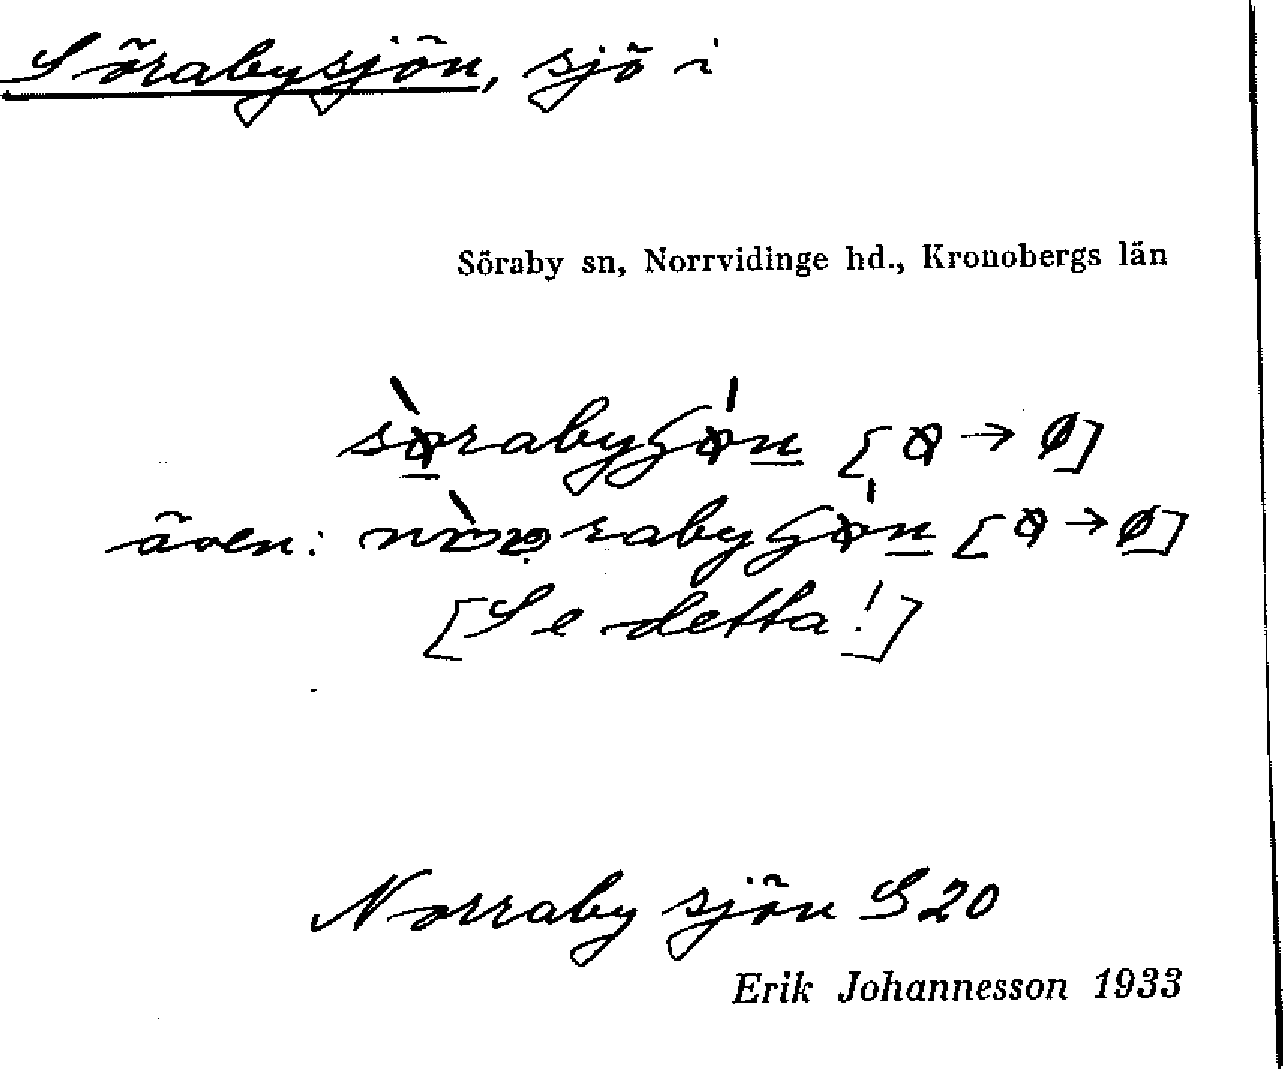 Sörabysjön, sjö i
Söraby sn, Norrvidinge hd., Kronobergs län
även:
[Se detta!]
Norraby sjön S 20
Erik Johannesson 1933